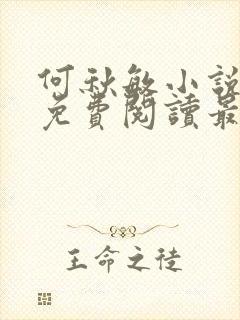 何秋敏小說
免費閱讀最
王命之徒